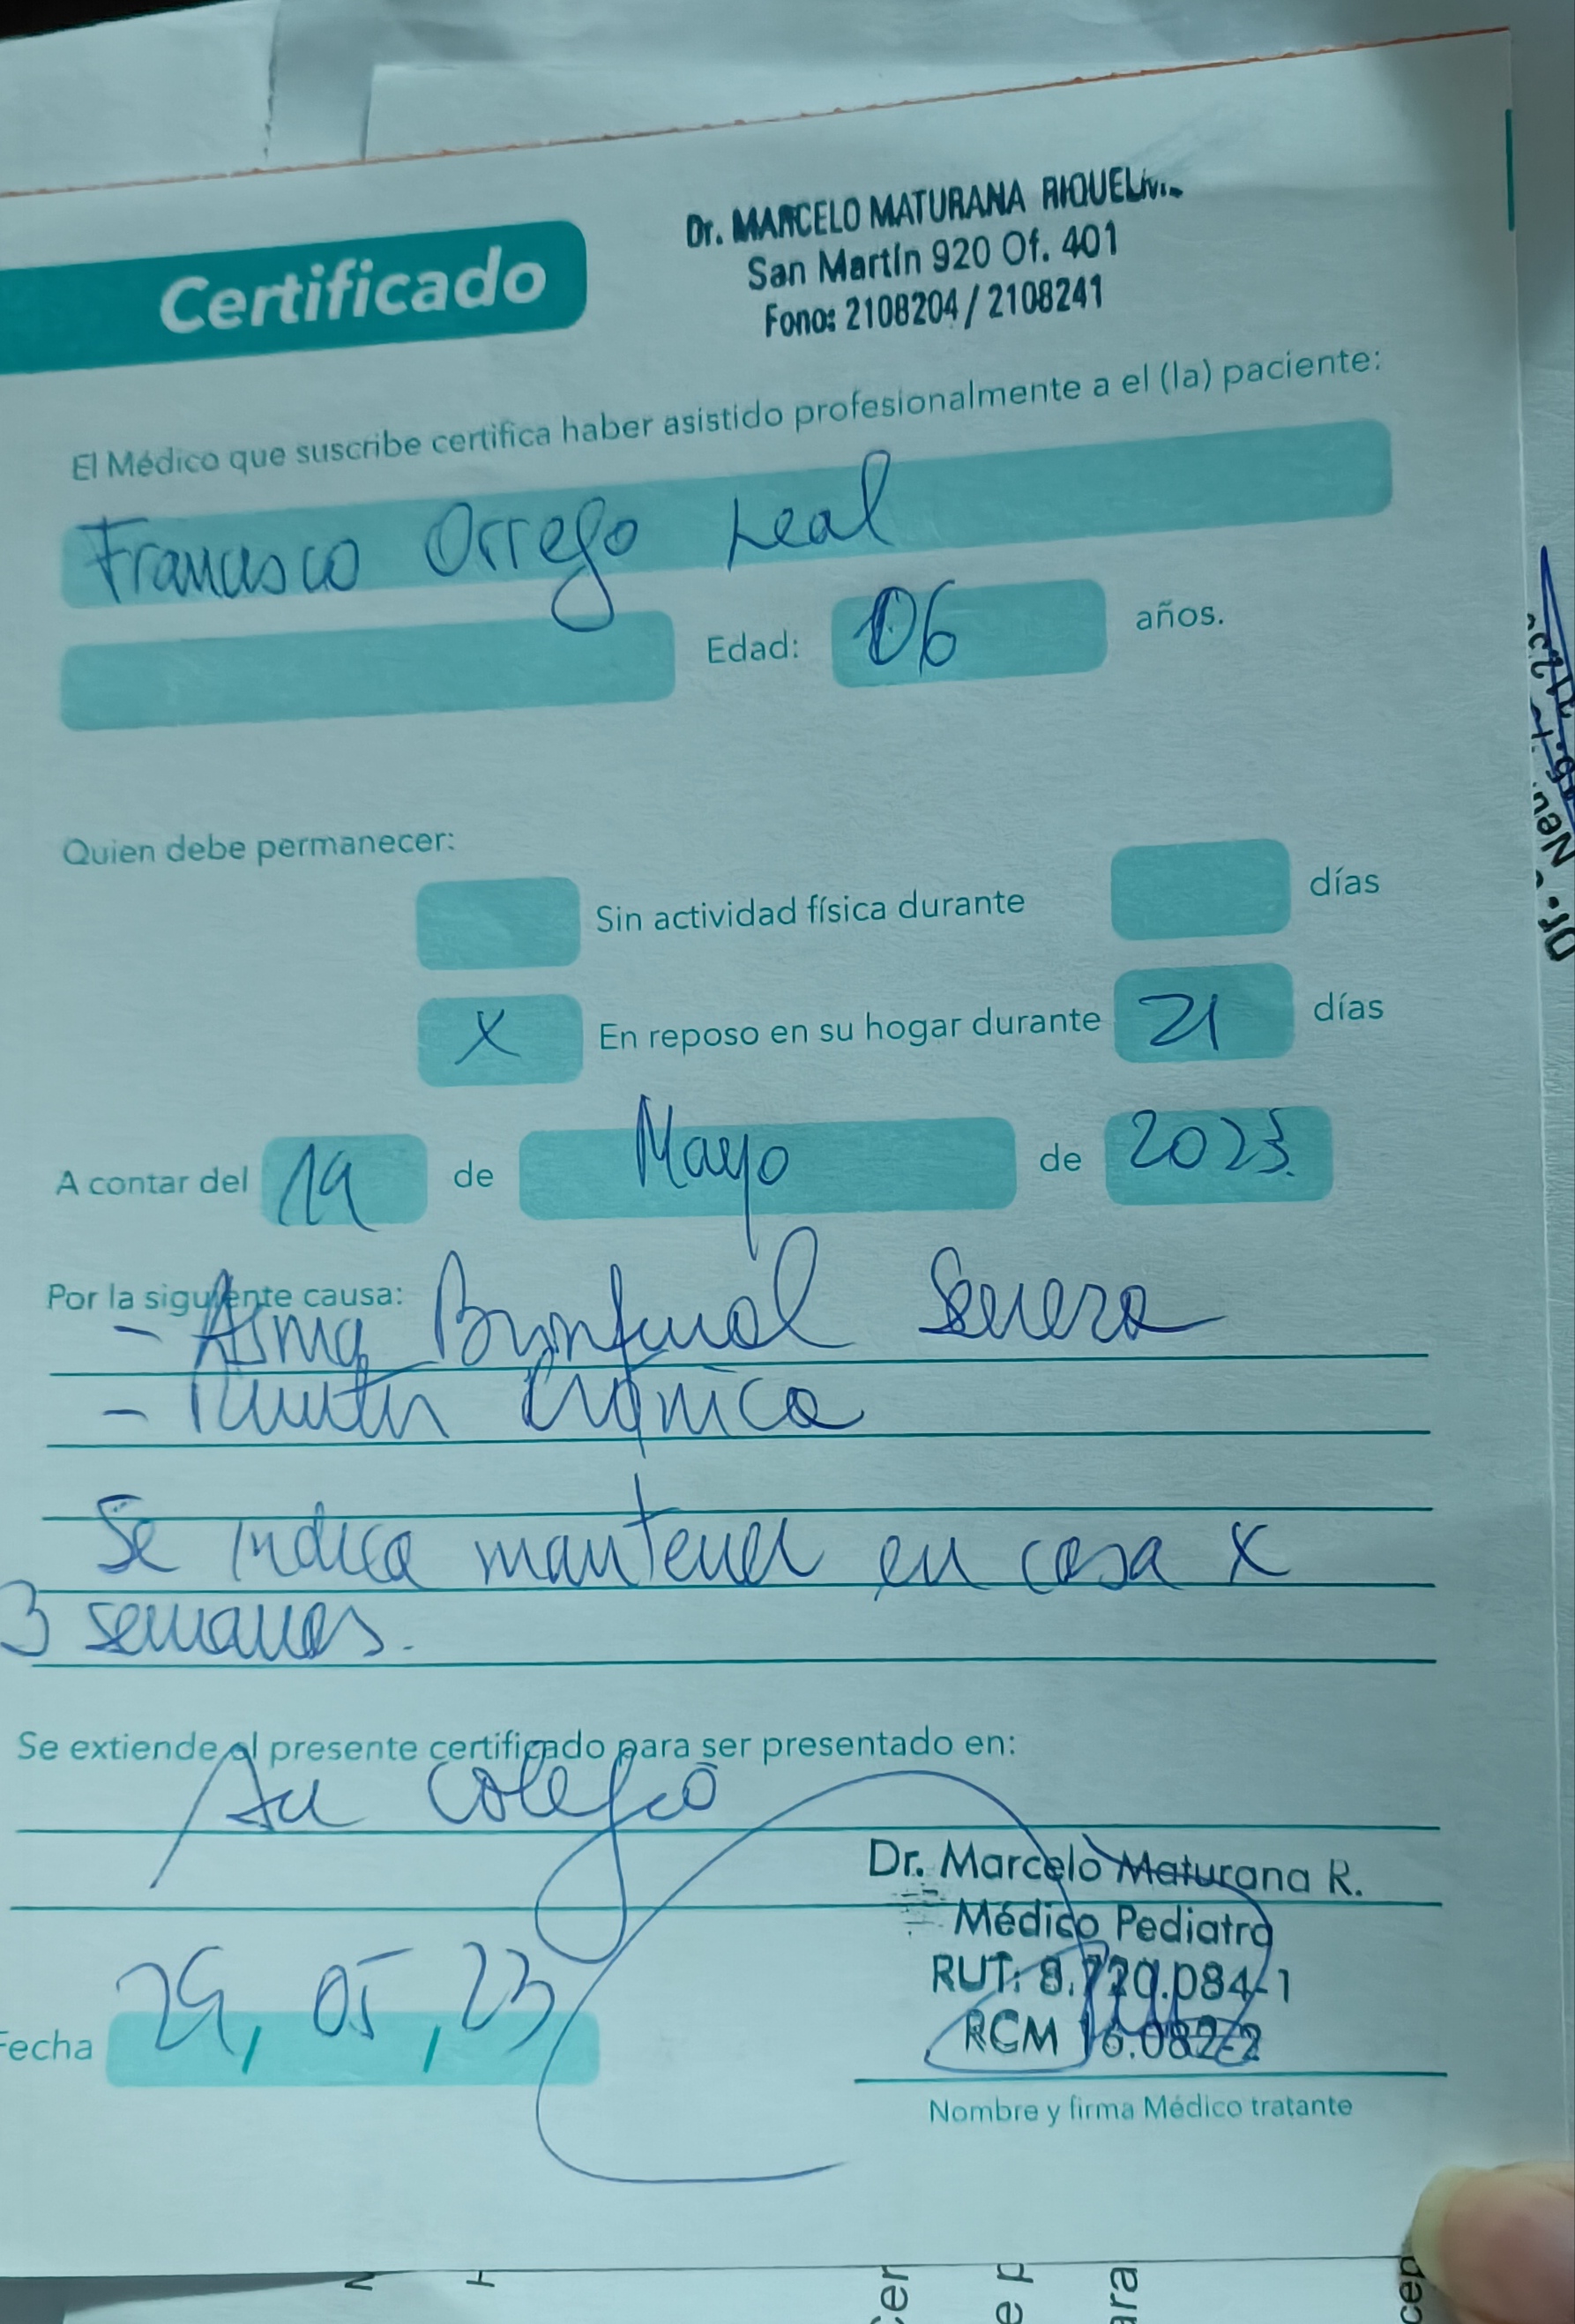 Dr. MARCELO MATURANA RIQUELME
San Martín 920 Of. 401
Fono: 2108204 / 2108241
Certificado
El Médico que suscribe certifica haber asistido profesionalmente a el (la) paciente:
Francisco Orrego Leal
Edad: 06 años.
Quien debe permanecer:
Sin actividad física durante días
X En reposo en su hogar durante 21 días
A contar del 19 de Mayo de 2023.
Por la siguiente causa:
- Asma Bronquial Severa
- Rinitis Crónica
Se indica mantener en casa x
3 semanas.
Se extiende el presente certificado para ser presentado en:
Su colegio
Dr. Marcelo Maturana R.
Médico Pediatra
RUT: 8.720.084-1
RCM 16.082-2
Fecha 29, 05, 23
Nombre y firma Médico tratante